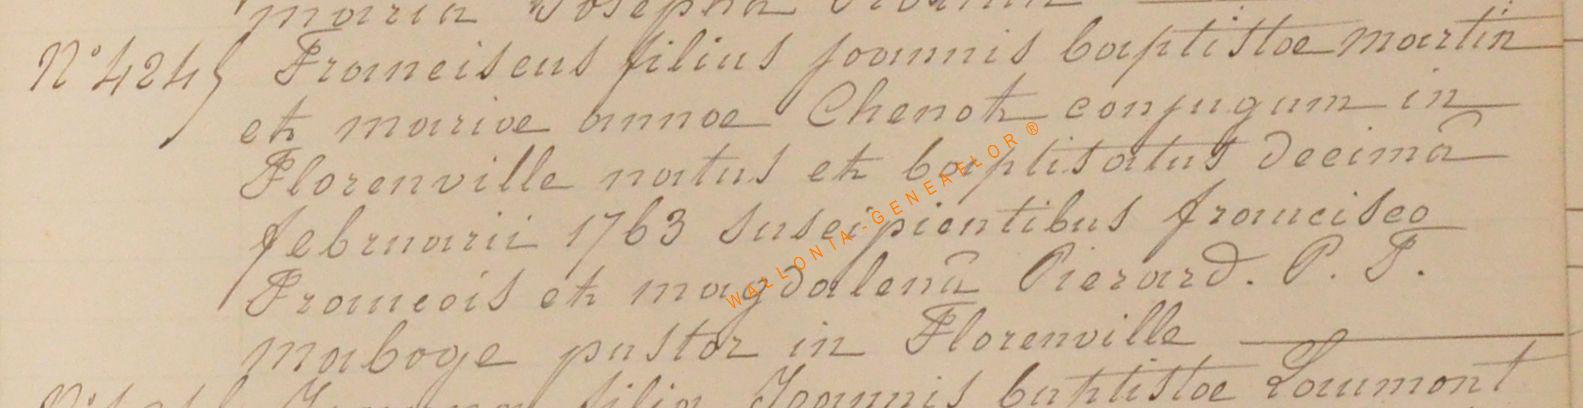 maria Josepha
N° 4245 Franciscus filius joannis baptistae martin
et mariae annae Chenot conjugum in
Florenville natus et baptisatus decimâ
februarii 1763 suscipientibus francisco
Francois et magdalenâ Pierard. P. F.
maboge pastor in Florenville
filia Joannis baptistae Laumont
WALLONIA-GENEAFLOR ®